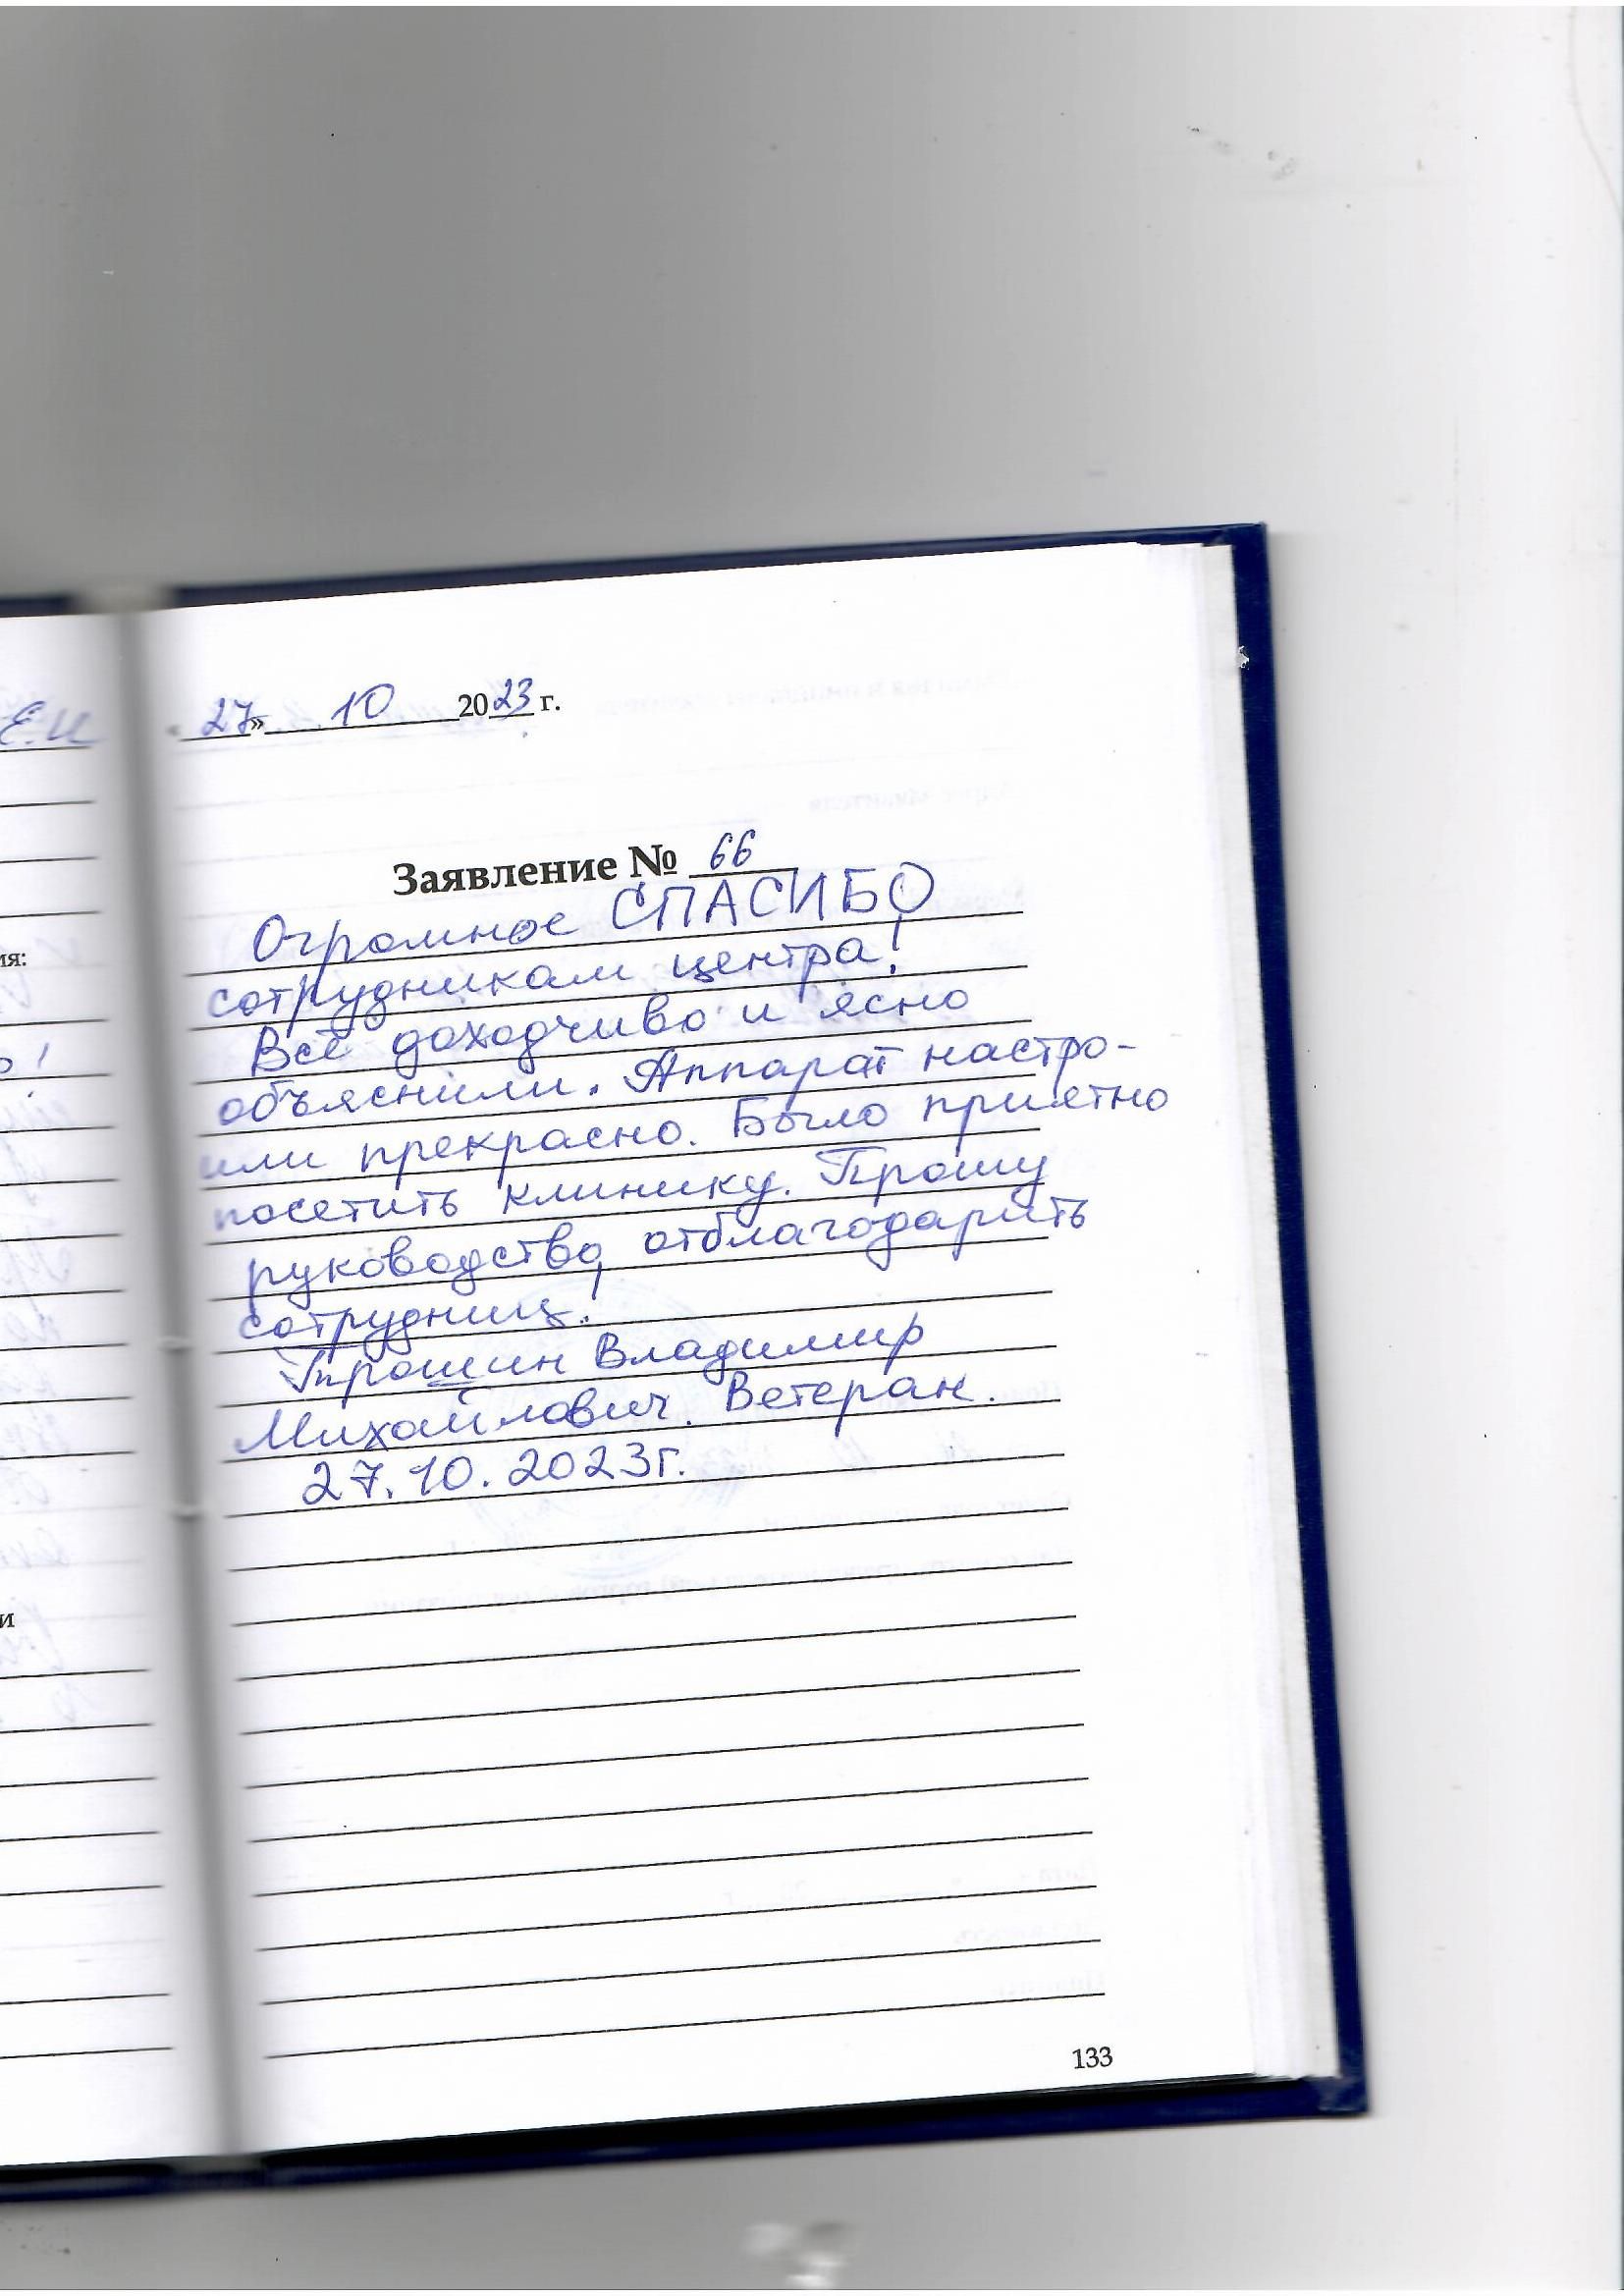 Е.И
ия:
о!
и
27» 10 2023 г.
Заявление № 66
Огромное СПАСИБО
сотрудникам центра!
Всё доходчиво и ясно
объяснили. Аппарат настро-
или прекрасно. Было приятно
посетить клинику. Прошу
руководство отблагодарить
сотрудниц!
Трошин Владимир
Михайлович. Ветеран.
27.10.2023г.
133